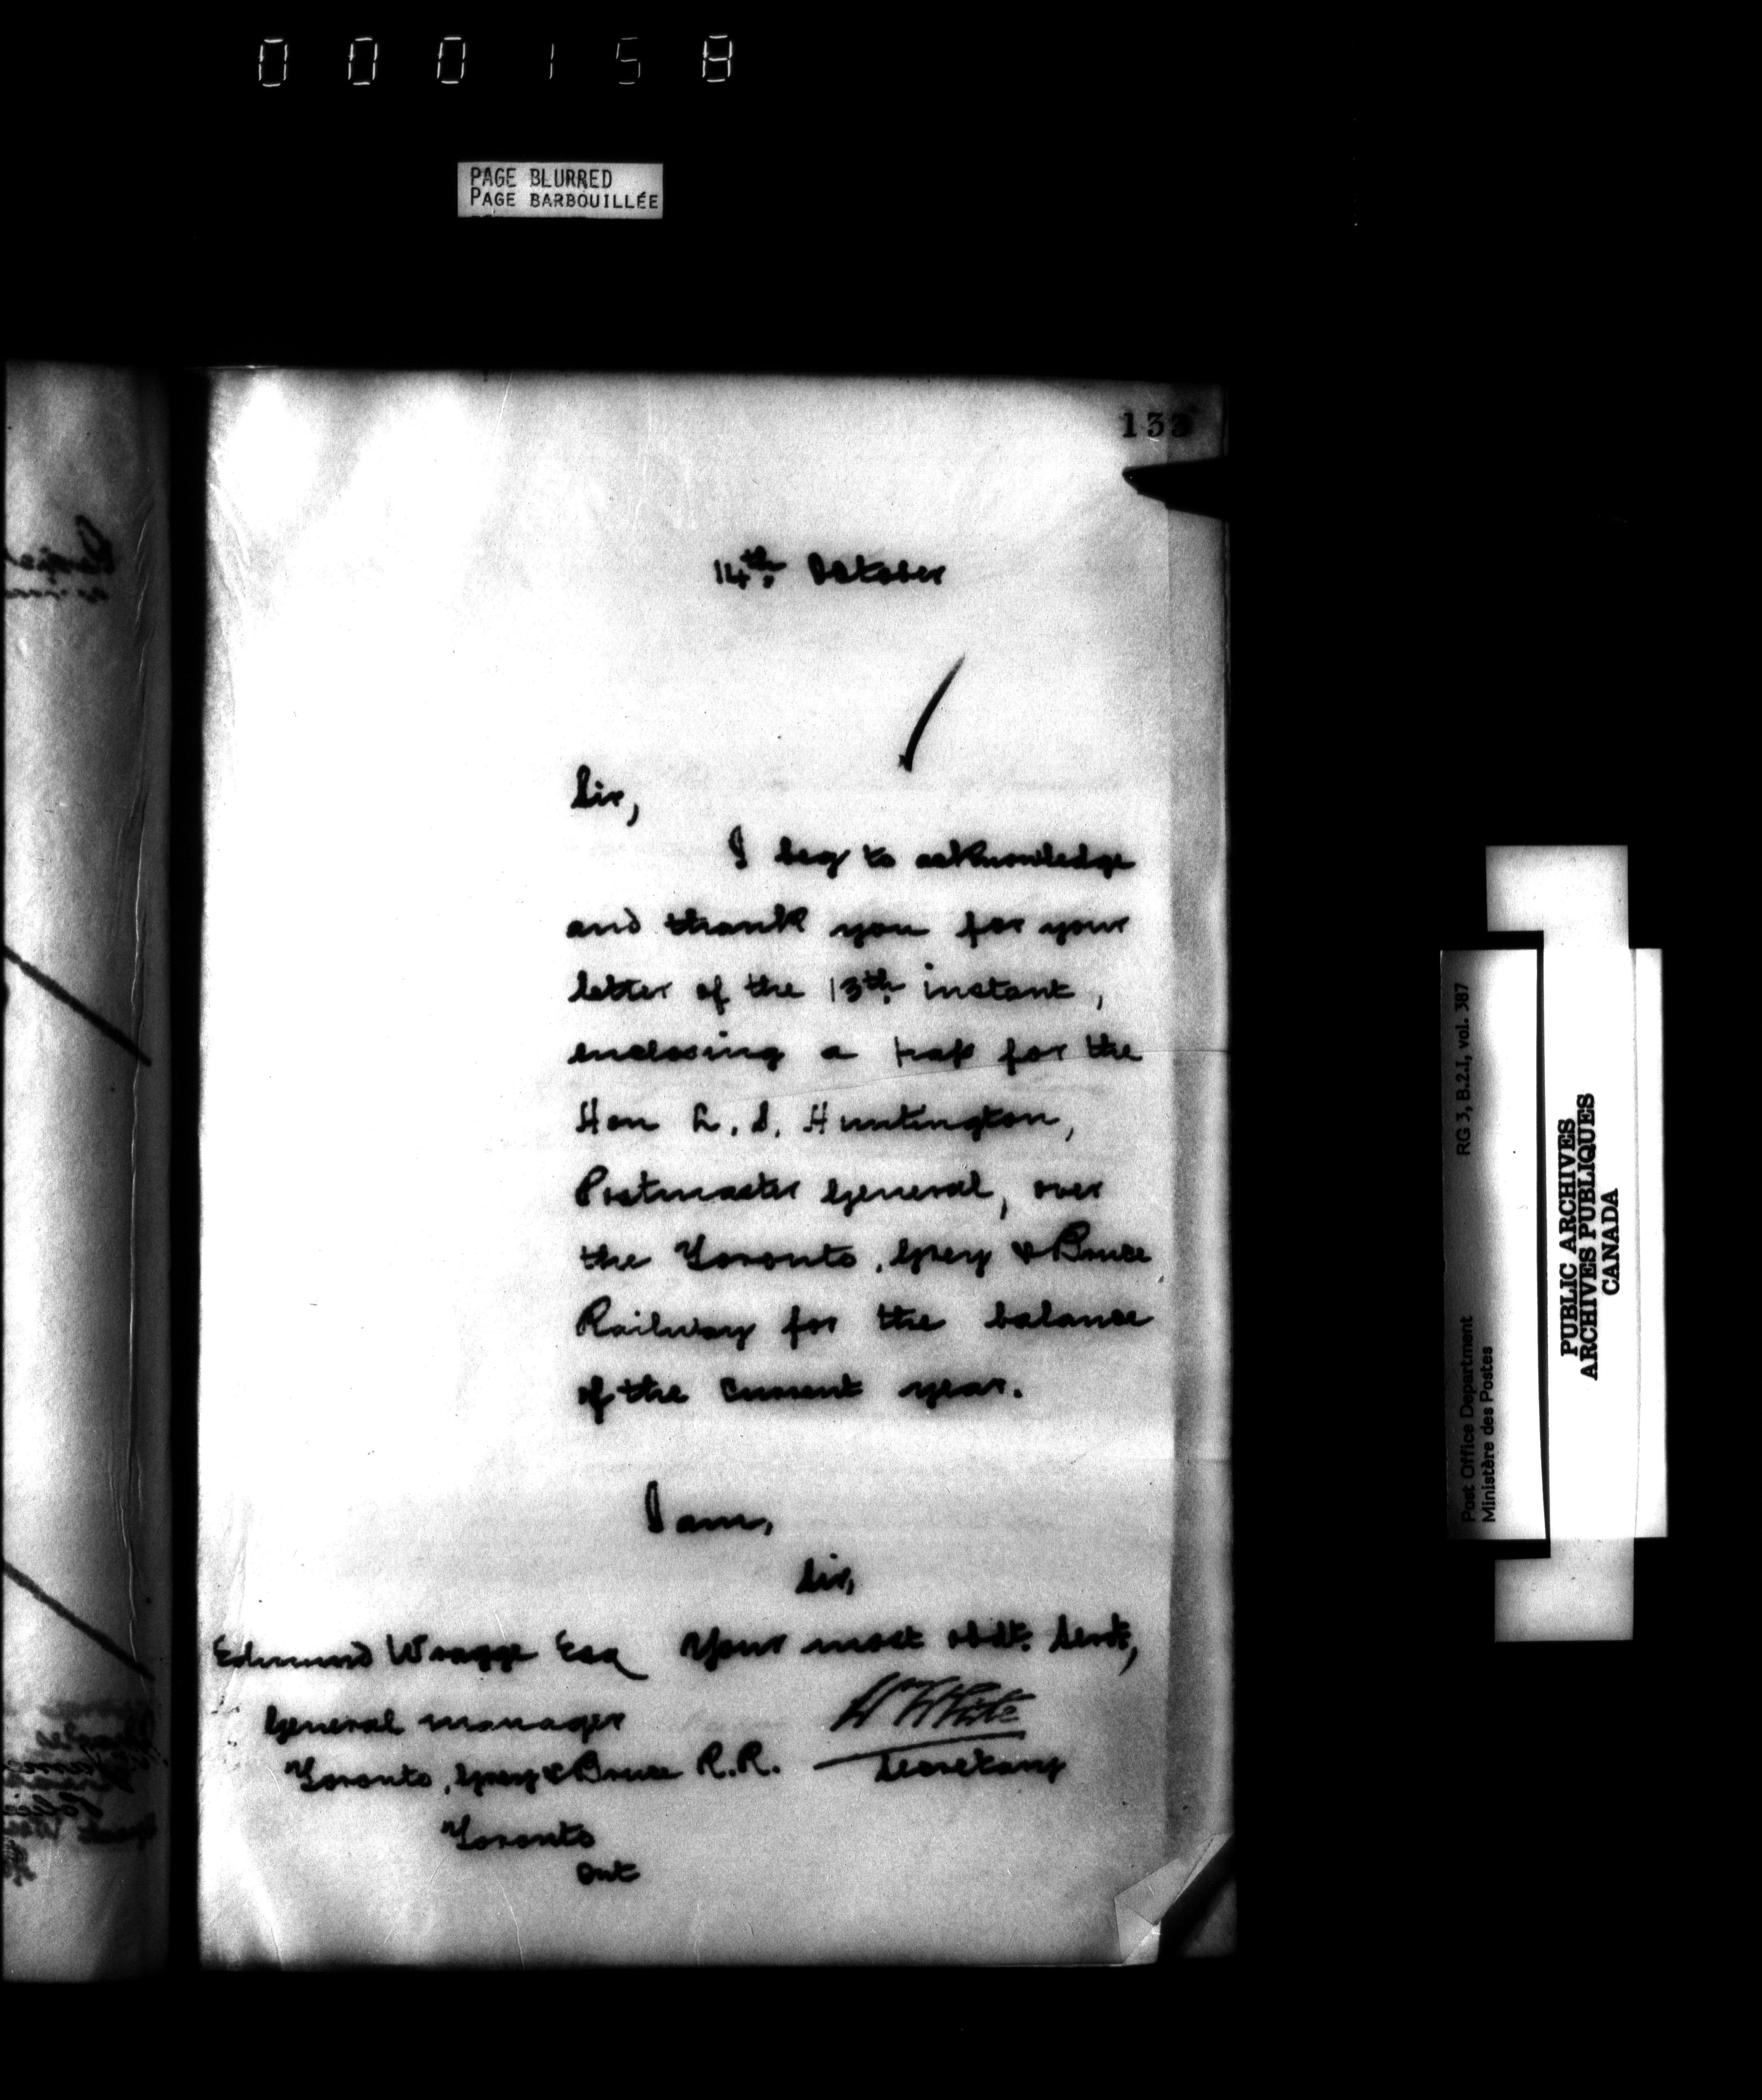 000158
PAGE BLURRED
PAGE BARBOUILLÉE
14th. October
Sir,
I beg to acknowledge
and thank you for your
letter of the 13th. instant,
enclosing a pass for the
Hon L. S. Huntington,
Postmaster General, over
the Toronto, Grey & Bruce
Railway for the balance
of the current year.
I am,
Sir,
Your most obdt. Servt,
W White
Secretary
Edmund Wragge Esq
General Manager
Toronto, Grey & Bruce R.R.
Toronto
Ont
RG 3, B.2.1, vol. 387
Post Office Department
Ministère des Postes
PUBLIC ARCHIVES
ARCHIVES PUBLIQUES
CANADA